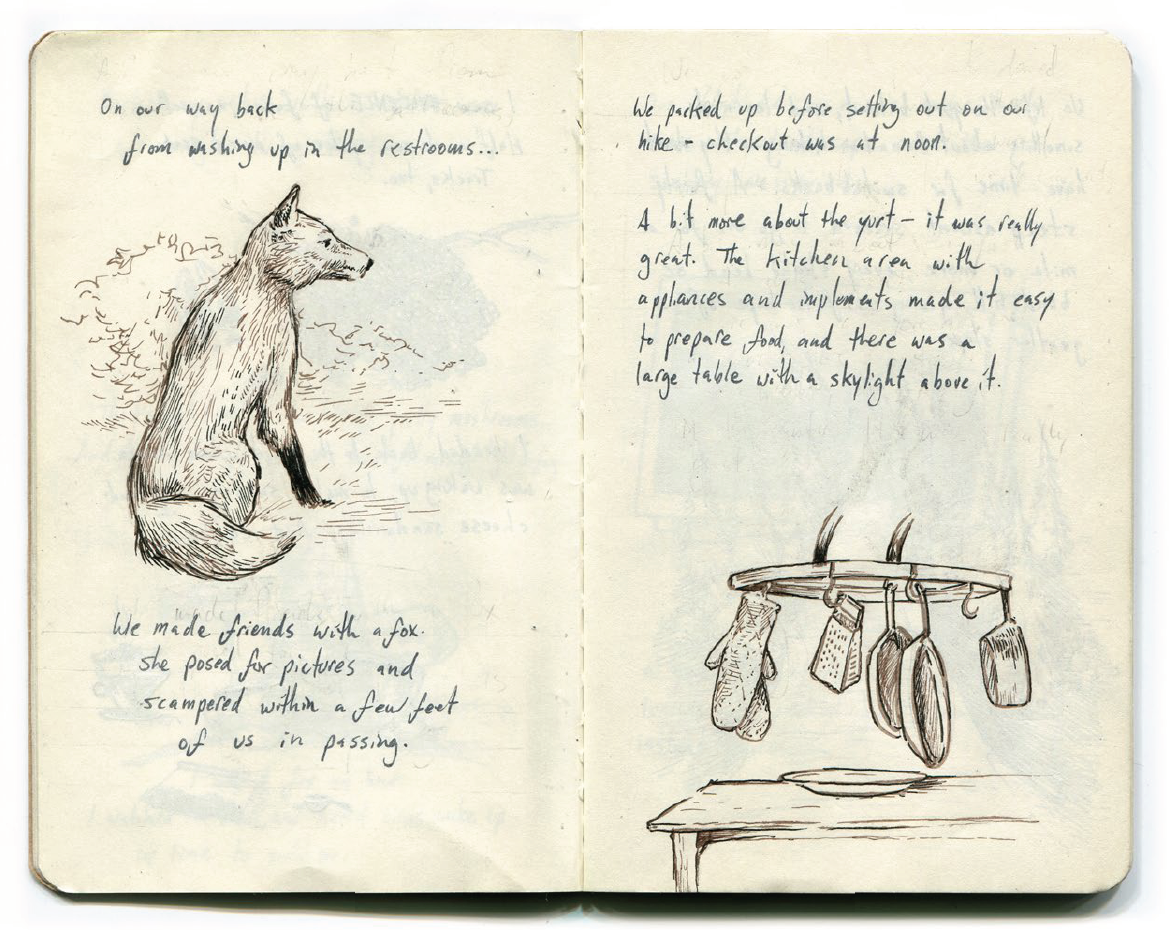 On our way back
from washing up in the restrooms...
We made friends with a fox.
She posed for pictures and
scampered within a few feet
of us in passing.
We packed up before setting out on our
hike - checkout was at noon.
A bit more about the yurt – it was really
great. The kitchen area with
appliances and implements made it easy
to prepare food, and there was a
large table with a skylight above it.